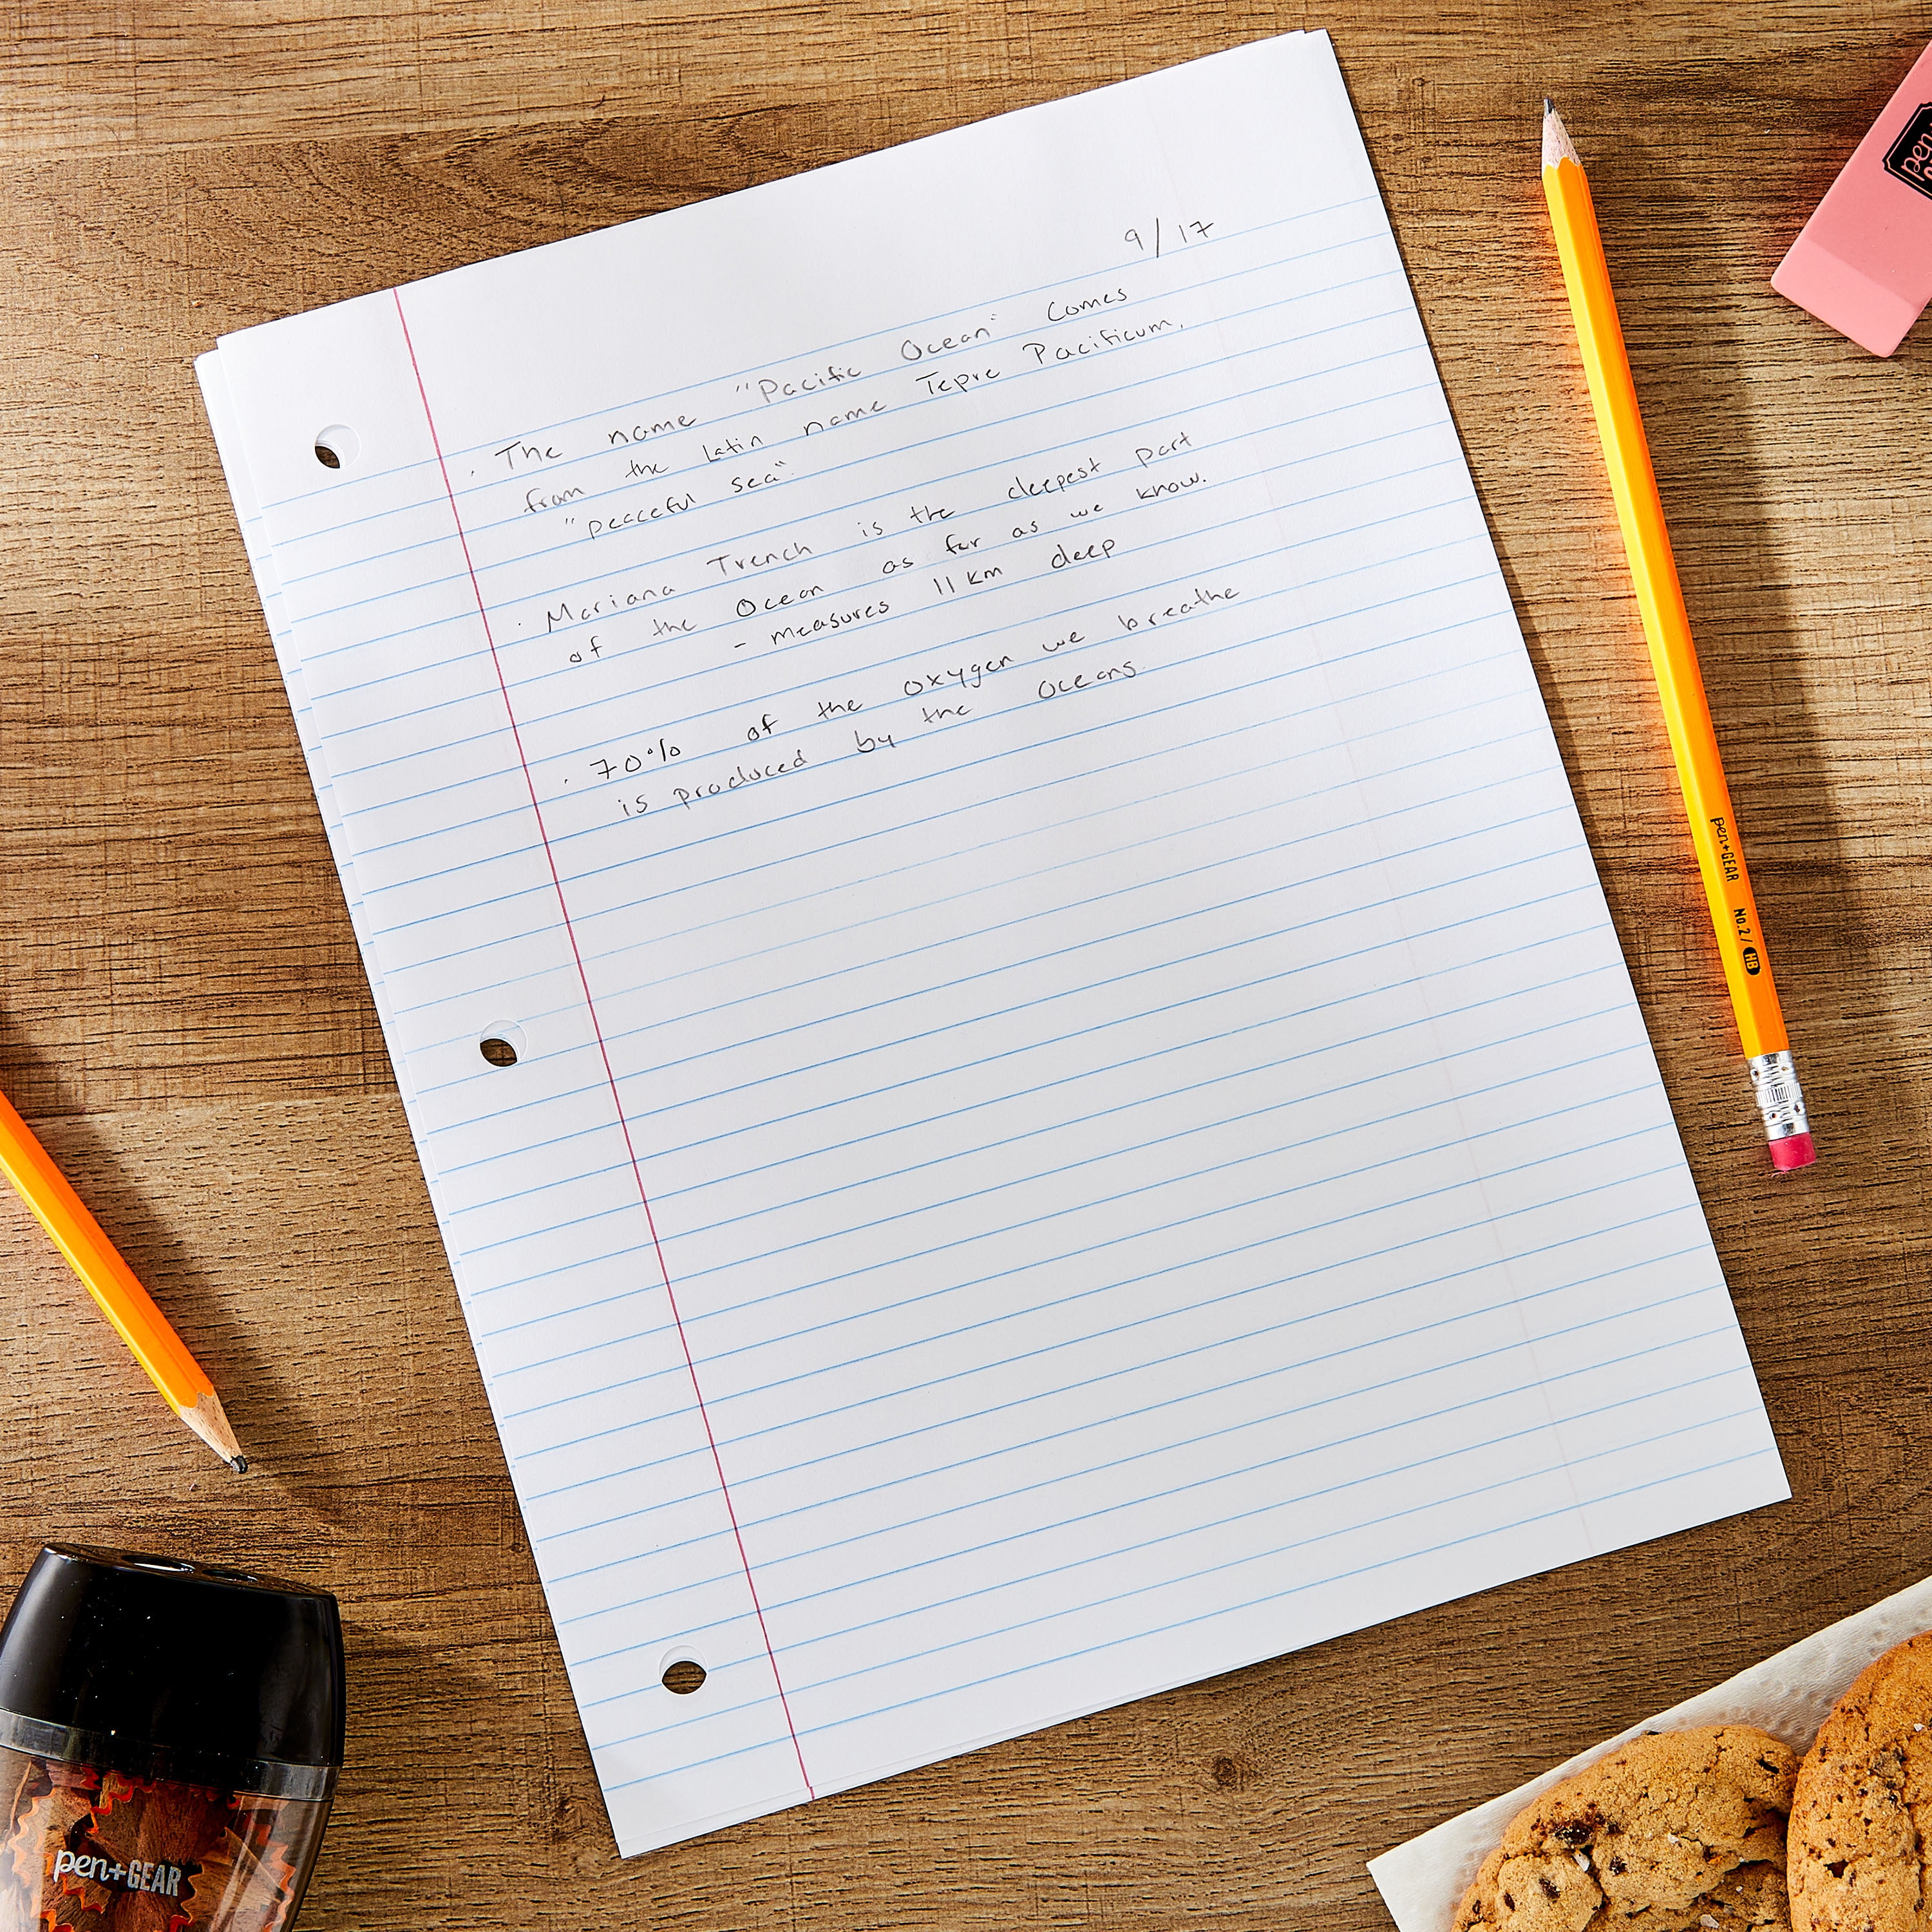 9/17
· The name "Pacific Ocean" comes
from the Latin name Tepre Pacificum,
"peaceful sea".
· Mariana Trench is the deepest part
of the Ocean as far as we know.
- measures 11 km deep
· 70% of the oxygen we breathe
is produced by the oceans.
pen+GEAR No.2/HB
pen+GEAR